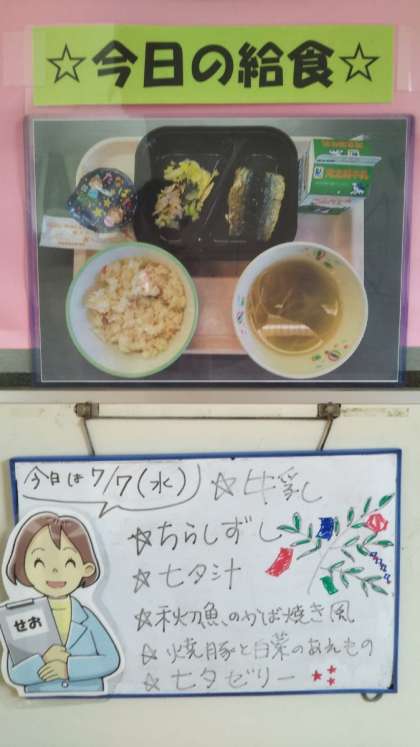 ☆今日の給食☆
今日は7/7(水)
☆牛乳
☆ちらしずし
☆七夕汁
☆秋刀魚のかば焼き風
☆焼豚と白菜のあえもの
☆七夕ゼリー
せお